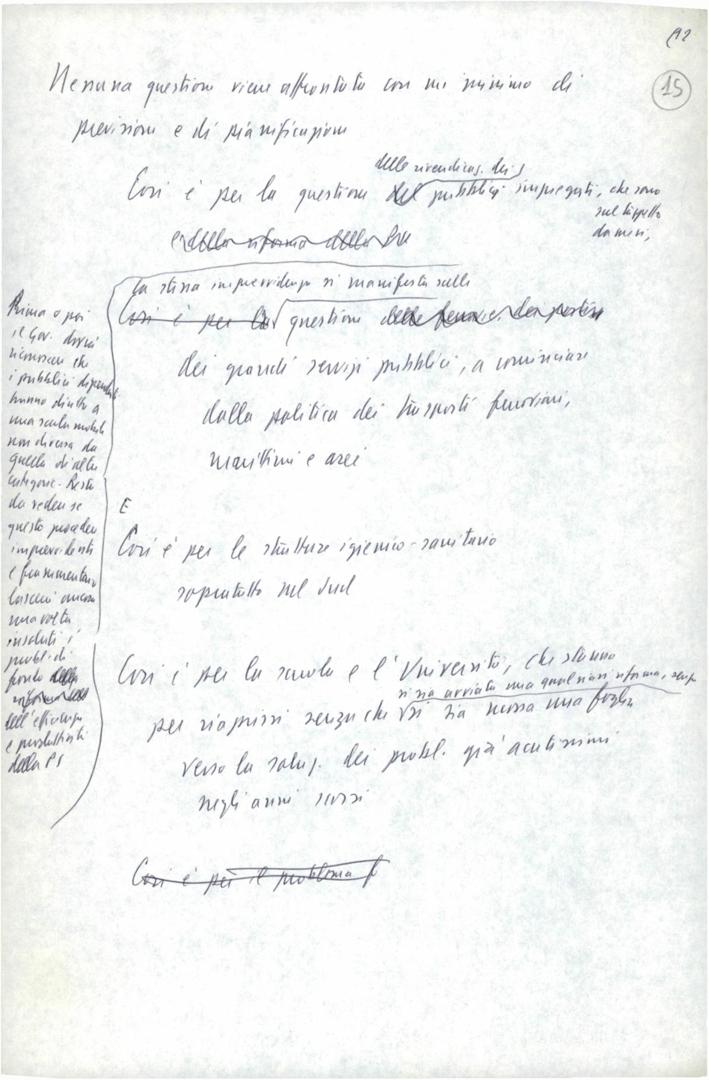 92
15
Nessuna questione viene affrontata con un minimo di
previsione e di pianificazione
delle rivendicaz. dei
Così è per la questione del pubblici impiegati, che sono
sul tappeto
da mesi,
e della riforma della
La stessa imprevidenza si manifesta sulle
Così è per la questione delle dei porti
dei grandi servizi pubblici, a cominciare
dalla politica dei trasporti ferroviari,
marittimi e aerei
E
Così è per le strutture igienico-sanitarie
soprattutto nel Sud
Così è per la scuola e l'Università, che stanno
si sia avviata una qualsiasi riforma, senza
per riaprirsi senza che si sia mossa una foglia
verso la soluz. dei probl. già acutissimi
negli anni scorsi
Così è per il problema
Prima o poi
il Gov. dovrà
riconoscere che
i pubblici dipendenti
hanno diritto a
una scala mobile
non diversa da
quella di altre
categorie. Resta
da vedere se
questo procedere
imprevidente
e frammentario
lascerà ancora
una volta
insoluti i
probl. di
fondo della
riforma della
dell'efficienza
e produttività
della PA